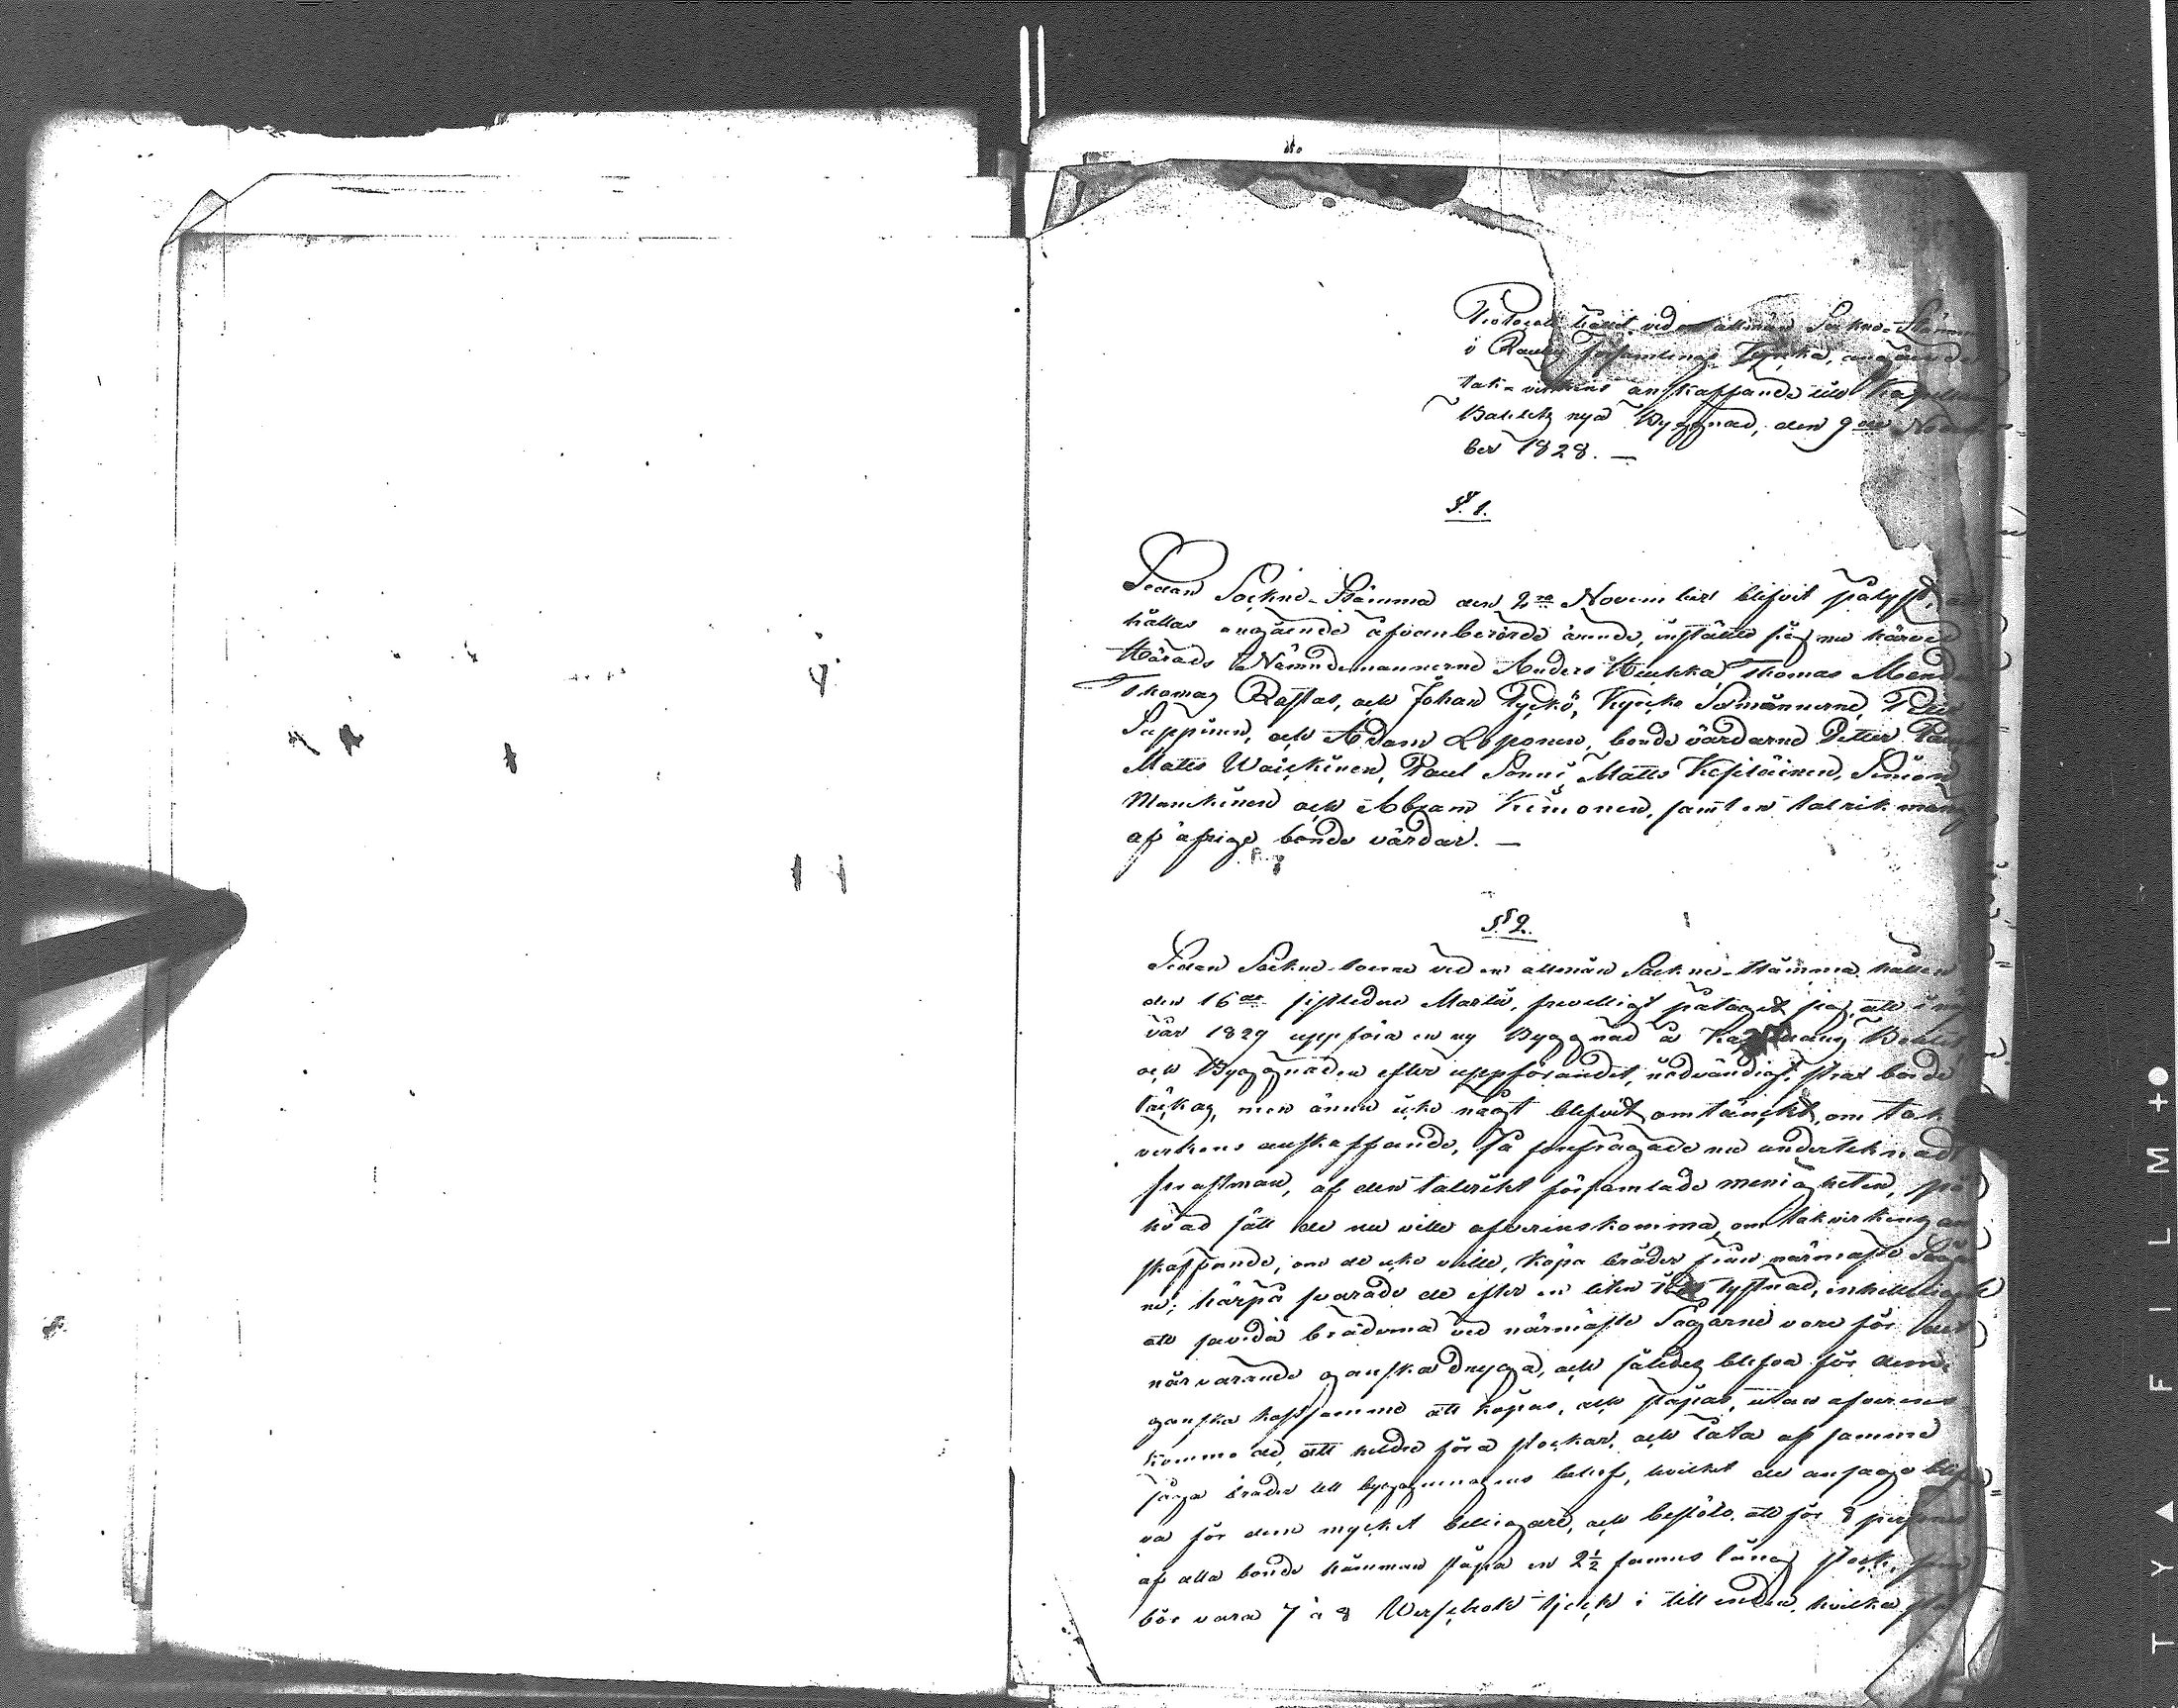 Protocoll hållit vid allmän Sockne-Stäm
i Rautu församlings Kyrka, angående
tak-virkens anskaffande till Kapellans
Boställes nya Byggnad, den 9de Novem=
ber 1828. —
§. 1.
Sedan Sockne-Stämma den 2ra November blifvit pålyst, att
hållas angående ofvanberörde ämnde, instälte sig nu härvid
Härads Nämndemannerne Anders Heukka, Thomas
Thomas Rastas, och Johan Kyrko Sexmännerne, Peter
Seppinen, och Adam Loponen, bonde värdarne Petter
Matts Waickinen, Paul Sonni, Matts Kesiläinen, Simon
Manckinen och Abram Kimonen, samt en talrik mäng
af öfrige bonde värdar. —
§ 2.
Sedan Sockne-boerne vid en allmän Sockne-Stämma, hållen
den 16de sistledne Martii, frivilligt påtagit sig, att i
vår 1829 uppföra en ny Byggnad å Kapellans Bostäl
och Byggnaden efter uppförandet, nödvändigt strax borde
täckas, men ännu icke något blifvit omtänckt, om tak
virkens anskaffande, Så förefrågade nu undertecknad
, af den talrikt församlade menigheten, på
hvad sätt de nu ville öfverenskomma, om takvirkens an
skaffande, om de icke ville, köpa bräder från närmaste Sågar
ne; härpå svarade de efter en liten tystnad, enhälleligen
att savida bräderna vid närmaste Sågarne vore för det
närvarande ganska dryga, och således blefvo för dem
ganska kostsamme att köpas, och släpas, utan öfverens
kommo de, att hellre föra stockar, och låta af samme
såga bräder till byggningens behof, hvilket de ansågo blif=
va för dem mycket billigare, och beslöto, att för 8
af alla bonde hämman släpa en 2½ famns lång stock, som
bör vara 7 à 8 Werschok tjock i lill endan, hvilka